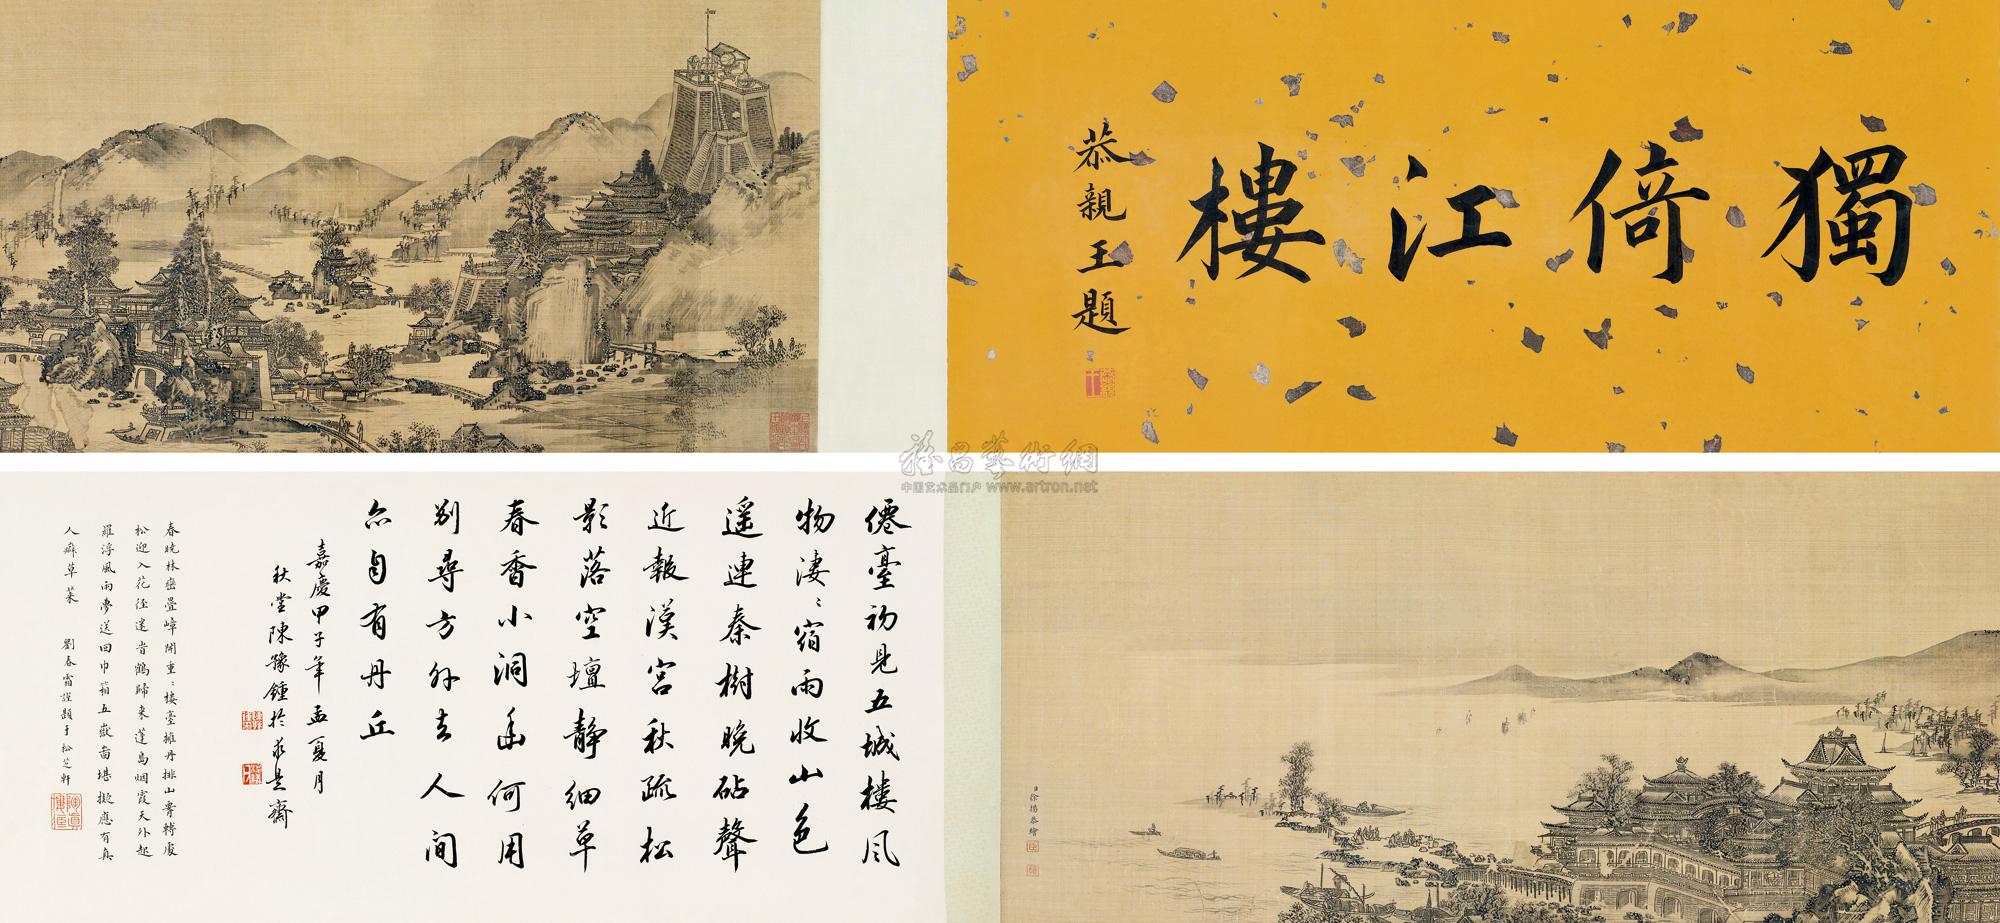 獨倚江樓
恭親王題
徐揚恭繪
僊臺初見五城樓風
物凄〻宿雨收山色
遥連秦樹晚砧聲
近報漢宮秋疏松
影落空壇靜細草
春香小洞幽何用
別尋方外去人間
亦自有丹丘
嘉慶甲子年孟夏月
秋堂陳豫鍾於求是齋
春曉林巒疊嶂開重〻樓臺擁丹排山骨轉處
松迎入花徑迷鶴歸來蓬島烟霞天外起
羅浮風雨夢送回巾箱五嶽啚堪擬應有真
人癖草萊 劉春霜謹題于松芝軒
雅昌藝術網
中国艺术品门户 www.artron.net